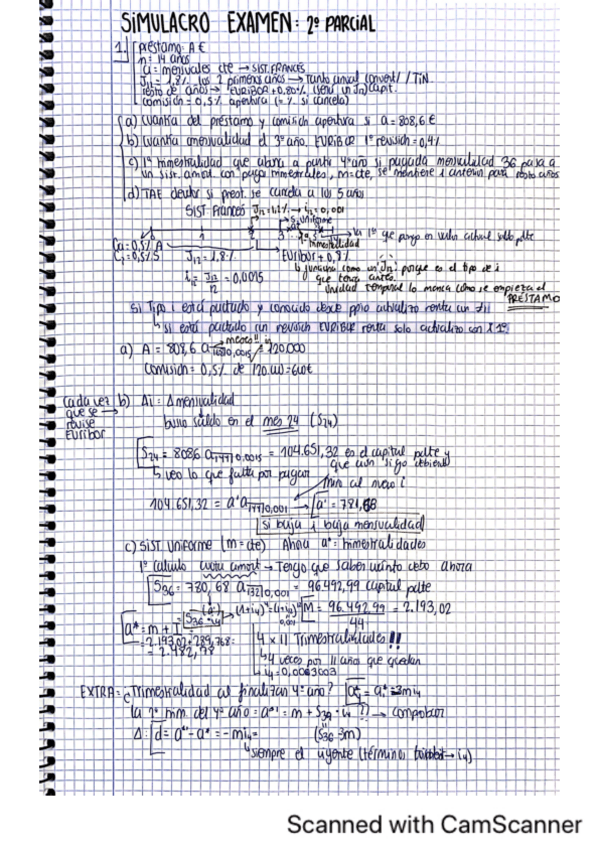 SIMULACRO EXAMEN: 2º PARCIAL
1. préstamo: A €
n: 14 años
a = mensuales cte → SIST. FRANCÉS
J12 = 1,8% los 2 primeros años → tanto anual convert / TIN
resto de años → EURIBOR + 0,80% (será un J12) capit.
comisión = 0,5% apertura (= % si cancela)
a) cuantía del préstamo y comisión apertura si a = 808,6 €
b) cuantía mensualidad el 3º año. EURIBOR 1ª revisión = 0,4%
c) 1ª trimestralidad que abona a partir 4º año si pagada mensualidad 36 pasa a
un sist. amort con pagos trimestrales, m = cte, se mantiene i anterior para resto años
d) TAE deudor si prest. se cancela a los 5 años
SIST. Francés J12 = 1,2% → i12 = 0,001
S. uniforme
la 1ª que pongo en valor actual
trimestralidad
Ca = 0,5% A
J12 = 1,8%
Euribor + 0,8%
funciona como un J12 porque es el tipo de i
que tenía antes.
i12 = J12/12 = 0,0015
unidad temporal lo marca cómo se empieza el
PRÉSTAMO
Si Tipo i está pactado y conocido desde ppio actualizo renta
si está pactado un revisión EURIBOR renta solo actualizo con
a) A = 808,6 a 168 0,0015 = 120.000
Comisión = 0,5% de 120.000 = 600€
cada vez
que se →
revise
Euribor
b) Δi = Δ mensualidad
busco saldo en el mes 24 (S24)
S24 = 808,6 a 144 0,0015 = 104.651,32 es el capital pdte
que aún sigo debiendo
↳ veo lo que falta por pagar
104.651,32 = a' a 144 0,001 → a' = 781,68
Si baja i baja mensualidad
c) SIST Uniforme (m = cte) Ahora a* = trimestralidades
1º Calculo cuota amort → Tengo que saber cuánto debo ahora
S36 = 780,68 a 132 0,001 = 96.492,99 capital pdte
M = 96.492,99 / 44 = 2.193,02
a* = m + I
= 2.193,02 + 289,768 =
= 2.482,78
4 x 11 Trimestralidades!!
↳ 4 veces por 11 años que quedan
i4 = 0,0063003
EXTRA: ¿Trimestralidad al finalizar 4º año?
la 2ª trim. del 4º año = a*' = m + S39 · i4 ?? → comprobar
(S36 - 3m)
Δ: d = a*' - a* = -mi4 =
↳ siempre el vigente
Scanned with CamScanner